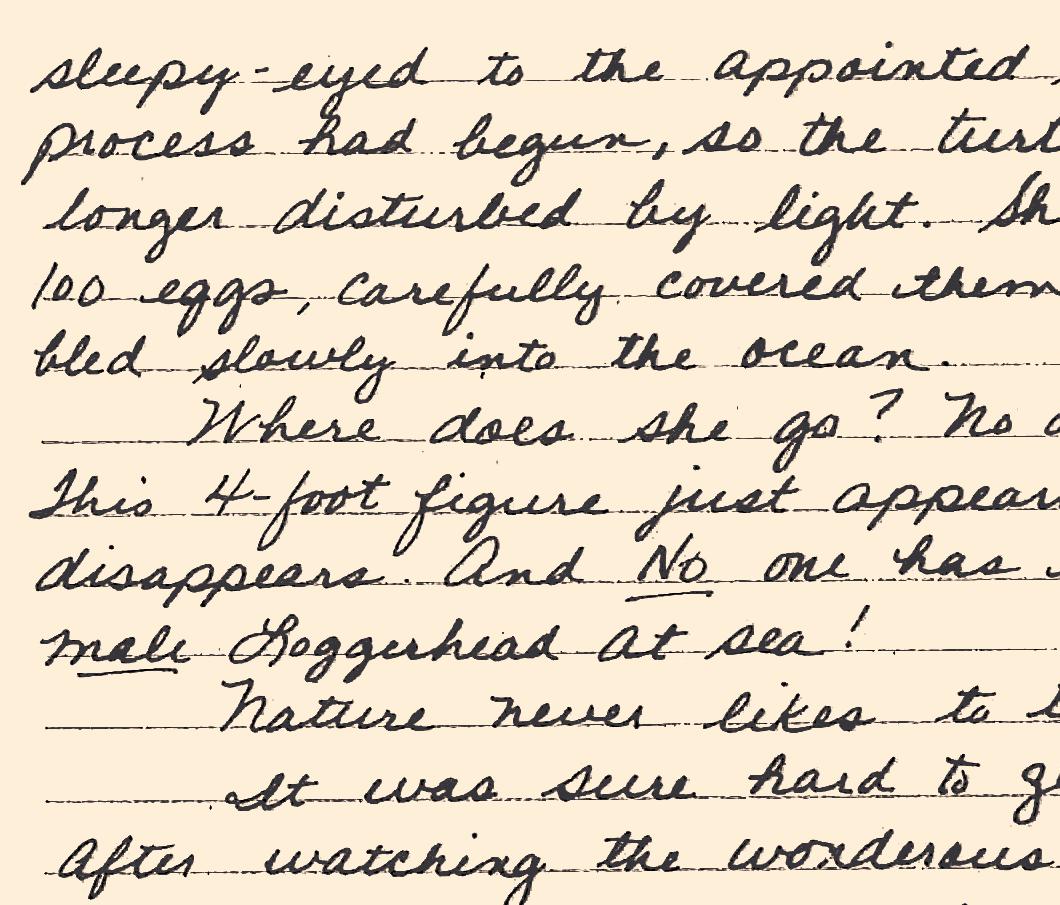 sleepy-eyed to the appointed
process had begun, so the
longer disturbed by light.
100 eggs, carefully covered them
bled slowly into the ocean.
Where does she go? No
This 4-foot figure just appear
disappears. And No one has
male Loggerhead at sea!
Nature never likes to
It was sure hard to
After watching the wonderous